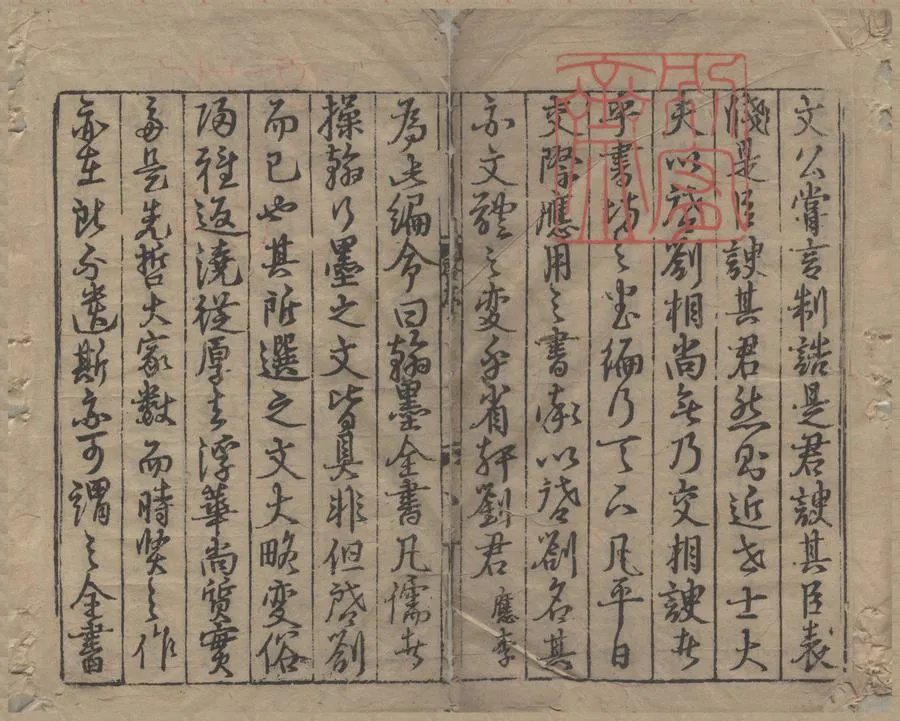 文公嘗言制誥是君諛其臣表
牋是臣諛其君然則近世士大
夫以啓劄相尚無乃交相諛者
乎書坊之書徧行天下凡平日
交際應用之書以啓劄名其
亦文體之變乎省軒劉君應李
為此編命曰翰墨全書凡儒者
操翰行墨之文皆具非但啓劄
而已也其所選之文大略變俗
歸雅返澆從厚去浮華尚質實
多是先哲大家數而時賢之作
亦在所不遺斯亦可謂之全書